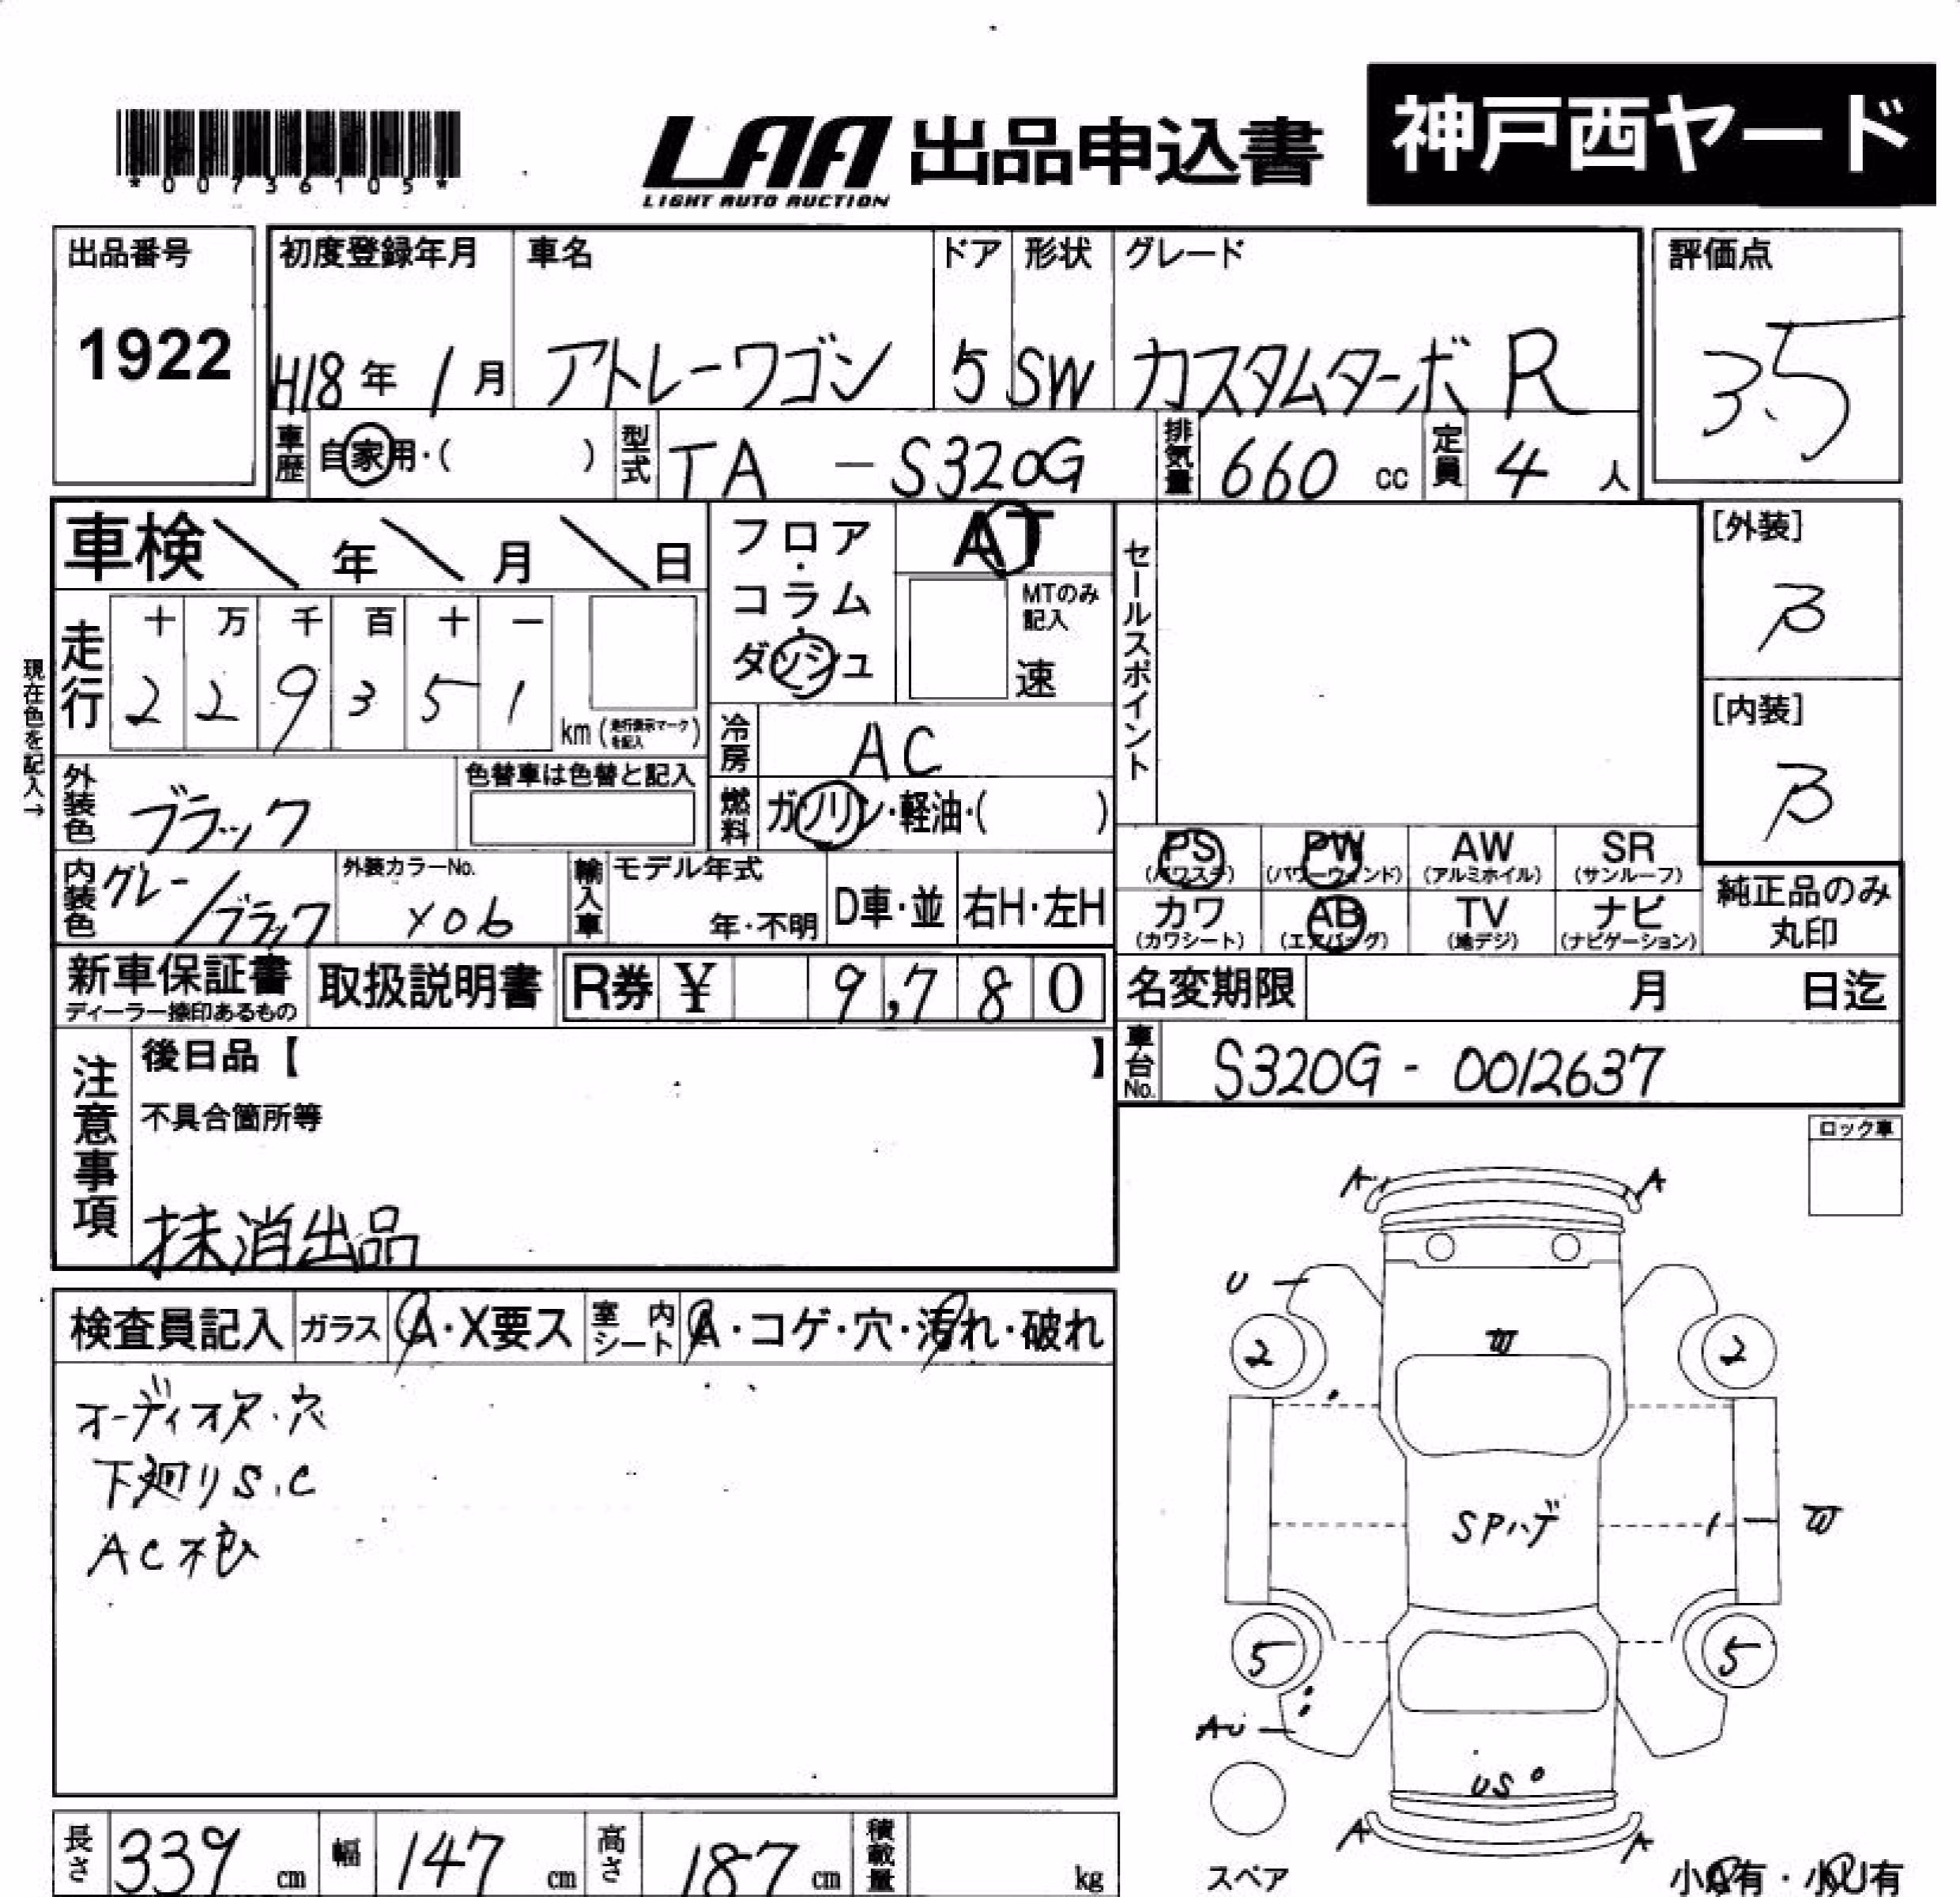 *00736105*
LAA 出品申込書 神戸西ヤード
LIGHT AUTO AUCTION
出品番号 初度登録年月 車名 ドア 形状 グレード 評価点
1922 H18年1月 アトレーワゴン 5 SW カスタムターボ R 3.5
車歴 自家用・( ) 型式 TA - S320G 排気量 660 cc 定員 4 人
車検 年 月 日 フロア・コラム・ダッシュ AT
MTのみ記入
速
セールスポイント
[外装]
B
[内装]
B
現在色を記入→
走行 十 万 千 百 十 一
2 2 9 3 5 1 km (走行表示マークを記入)
冷房 AC
外装色 ブラック 色替車は色替と記入
燃料 ガソリン・軽油・( )
内装色 グレー/ブラック 外装カラーNo. X06 輸入車 モデル年式 年・不明 D車・並 右H・左H
PS (パワステ) PW (パワーウィンド) AW (アルミホイル) SR (サンルーフ)
カワ (カワシート) AB (エアバッグ) TV (地デジ) ナビ (ナビゲーション)
純正品のみ丸印
新車保証書 ディーラー捺印あるもの 取扱説明書 R券 ¥ 9,780
名変期限 月 日迄
車台No. S320G - 0012637
注意事項
後日品【 】
不具合箇所等
抹消出品
ロック車
検査員記入 ガラス A・X要ス 室内シート A・コゲ・穴・汚れ・破れ
オーディオ欠・穴
下廻りS.C
AC不良
A A
U
2 2
W
SPハゲ
W
5 5
AU
US
A A
スペア
小A有・小U有
長さ 339 cm 幅 147 cm 高さ 187 cm 積載量 kg